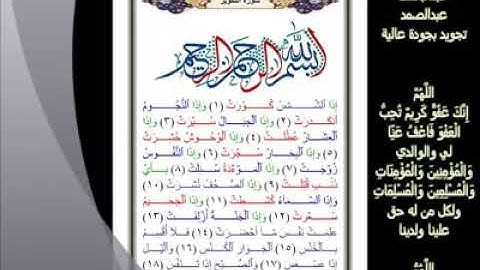 سورة التكوير
بسم الله الرحمن الرحيم
إِذَا الشَّمْسُ كُوِّرَتْ (١) وَإِذَا النُّجُومُ
انْكَدَرَتْ (٢) وَإِذَا الْجِبَالُ سُيِّرَتْ (٣) وَإِذَا
الْعِشَارُ عُطِّلَتْ (٤) وَإِذَا الْوُحُوشُ حُشِرَتْ
(٥) وَإِذَا الْبِحَارُ سُجِّرَتْ (٦) وَإِذَا النُّفُوسُ
زُوِّجَتْ (٧) وَإِذَا الْمَوْءُدَةُ سُئِلَتْ (٨) بِأَيِّ
ذَنْبٍ قُتِلَتْ (٩) وَإِذَا الصُّحُفُ نُشِرَتْ (١٠)
وَإِذَا السَّمَاءُ كُشِطَتْ (١١) وَإِذَا الْجَحِيمُ
سُعِّرَتْ (١٢) وَإِذَا الْجَنَّةُ أُزْلِفَتْ (١٣)
عَلِمَتْ نَفْسٌ مَا أَحْضَرَتْ (١٤) فَلَا أُقْسِمُ
بِالْخُنَّسِ (١٥) الْجَوَارِ الْكُنَّسِ (١٦) وَاللَّيْلِ
إِذَا عَسْعَسَ (١٧) وَالصُّبْحِ إِذَا تَنَفَّسَ (١٨)
عبدالصمد
تجويد بجودة عالية
اللَّهُمَّ
إِنَّكَ عَفُوٌّ كَرِيمٌ تُحِبُّ
الْعَفْوَ فَاعْفُ عَنَّا
لي والوالدي
وَالْمُؤْمِنِينَ وَالْمُؤْمِنَاتِ
وَالْمُسْلِمِينَ وَالْمُسْلِمَاتِ
ولكل من له حق
علينا ولدينا
اللَّهُمَّ